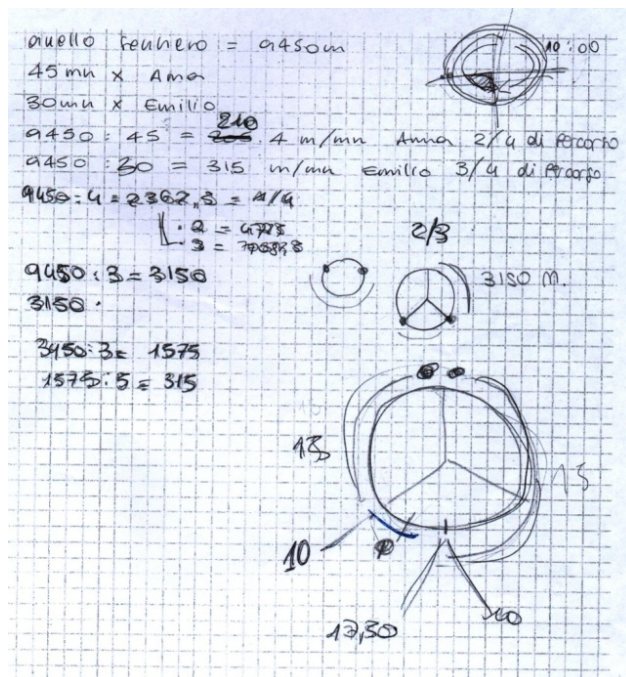 anello sentiero = 9450m
10:00
45 mn x Anna
30 mn x Emilio
210
9450 : 45 = 4 m/mn Anna 2/4 di Percorso
9450 : 30 = 315 m/mn Emilio 3/4 di Percorso
9450 : 4 = 2362,5 = 1/4
· 2 = 4725
· 3 =
2/3
9450 : 3 = 3150
3150 m.
3150 ·
3450 : 3 = 1575
1575 : 5 = 315
15
15
10
10
17,30